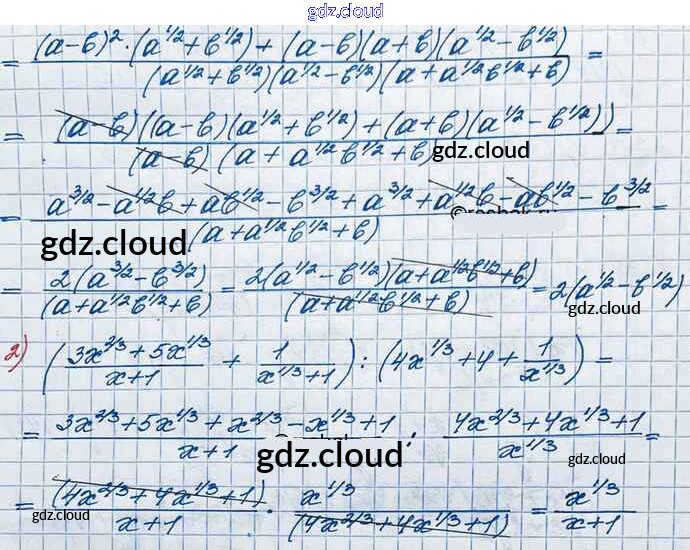 gdz.cloud
= ((a-b)²·(a^1/2+b^1/2)+(a-b)(a+b)(a^1/2-b^1/2))/((a^1/2+b^1/2)(a^1/2-b^1/2)(a+a^1/2b^1/2+b)) =
= ((a-b)((a-b)(a^1/2+b^1/2)+(a+b)(a^1/2-b^1/2)))/((a-b)(a+a^1/2b^1/2+b)) =
gdz.cloud
= (a^3/2-a^1/2b+ab^1/2-b^3/2+a^3/2+a^1/2b-ab^1/2-b^3/2)/(a+a^1/2b^1/2+b) =
gdz.cloud
= 2(a^3/2-b^3/2)/(a+a^1/2b^1/2+b) = 2(a^1/2-b^1/2)(a+a^1/2b^1/2+b)/(a+a^1/2b^1/2+b) = 2(a^1/2-b^1/2)
gdz.cloud
2) ((3x^2/3+5x^1/3)/(x+1) + 1/(x^1/3+1)) : (4x^1/3+4+1/x^1/3) =
= (3x^2/3+5x^1/3+x^2/3-x^1/3+1)/(x+1) : (4x^2/3+4x^1/3+1)/x^1/3 =
gdz.cloud
= (4x^2/3+4x^1/3+1)/(x+1) · x^1/3/(4x^2/3+4x^1/3+1) = x^1/3/(x+1)
gdz.cloud gdz.cloud gdz.cloud